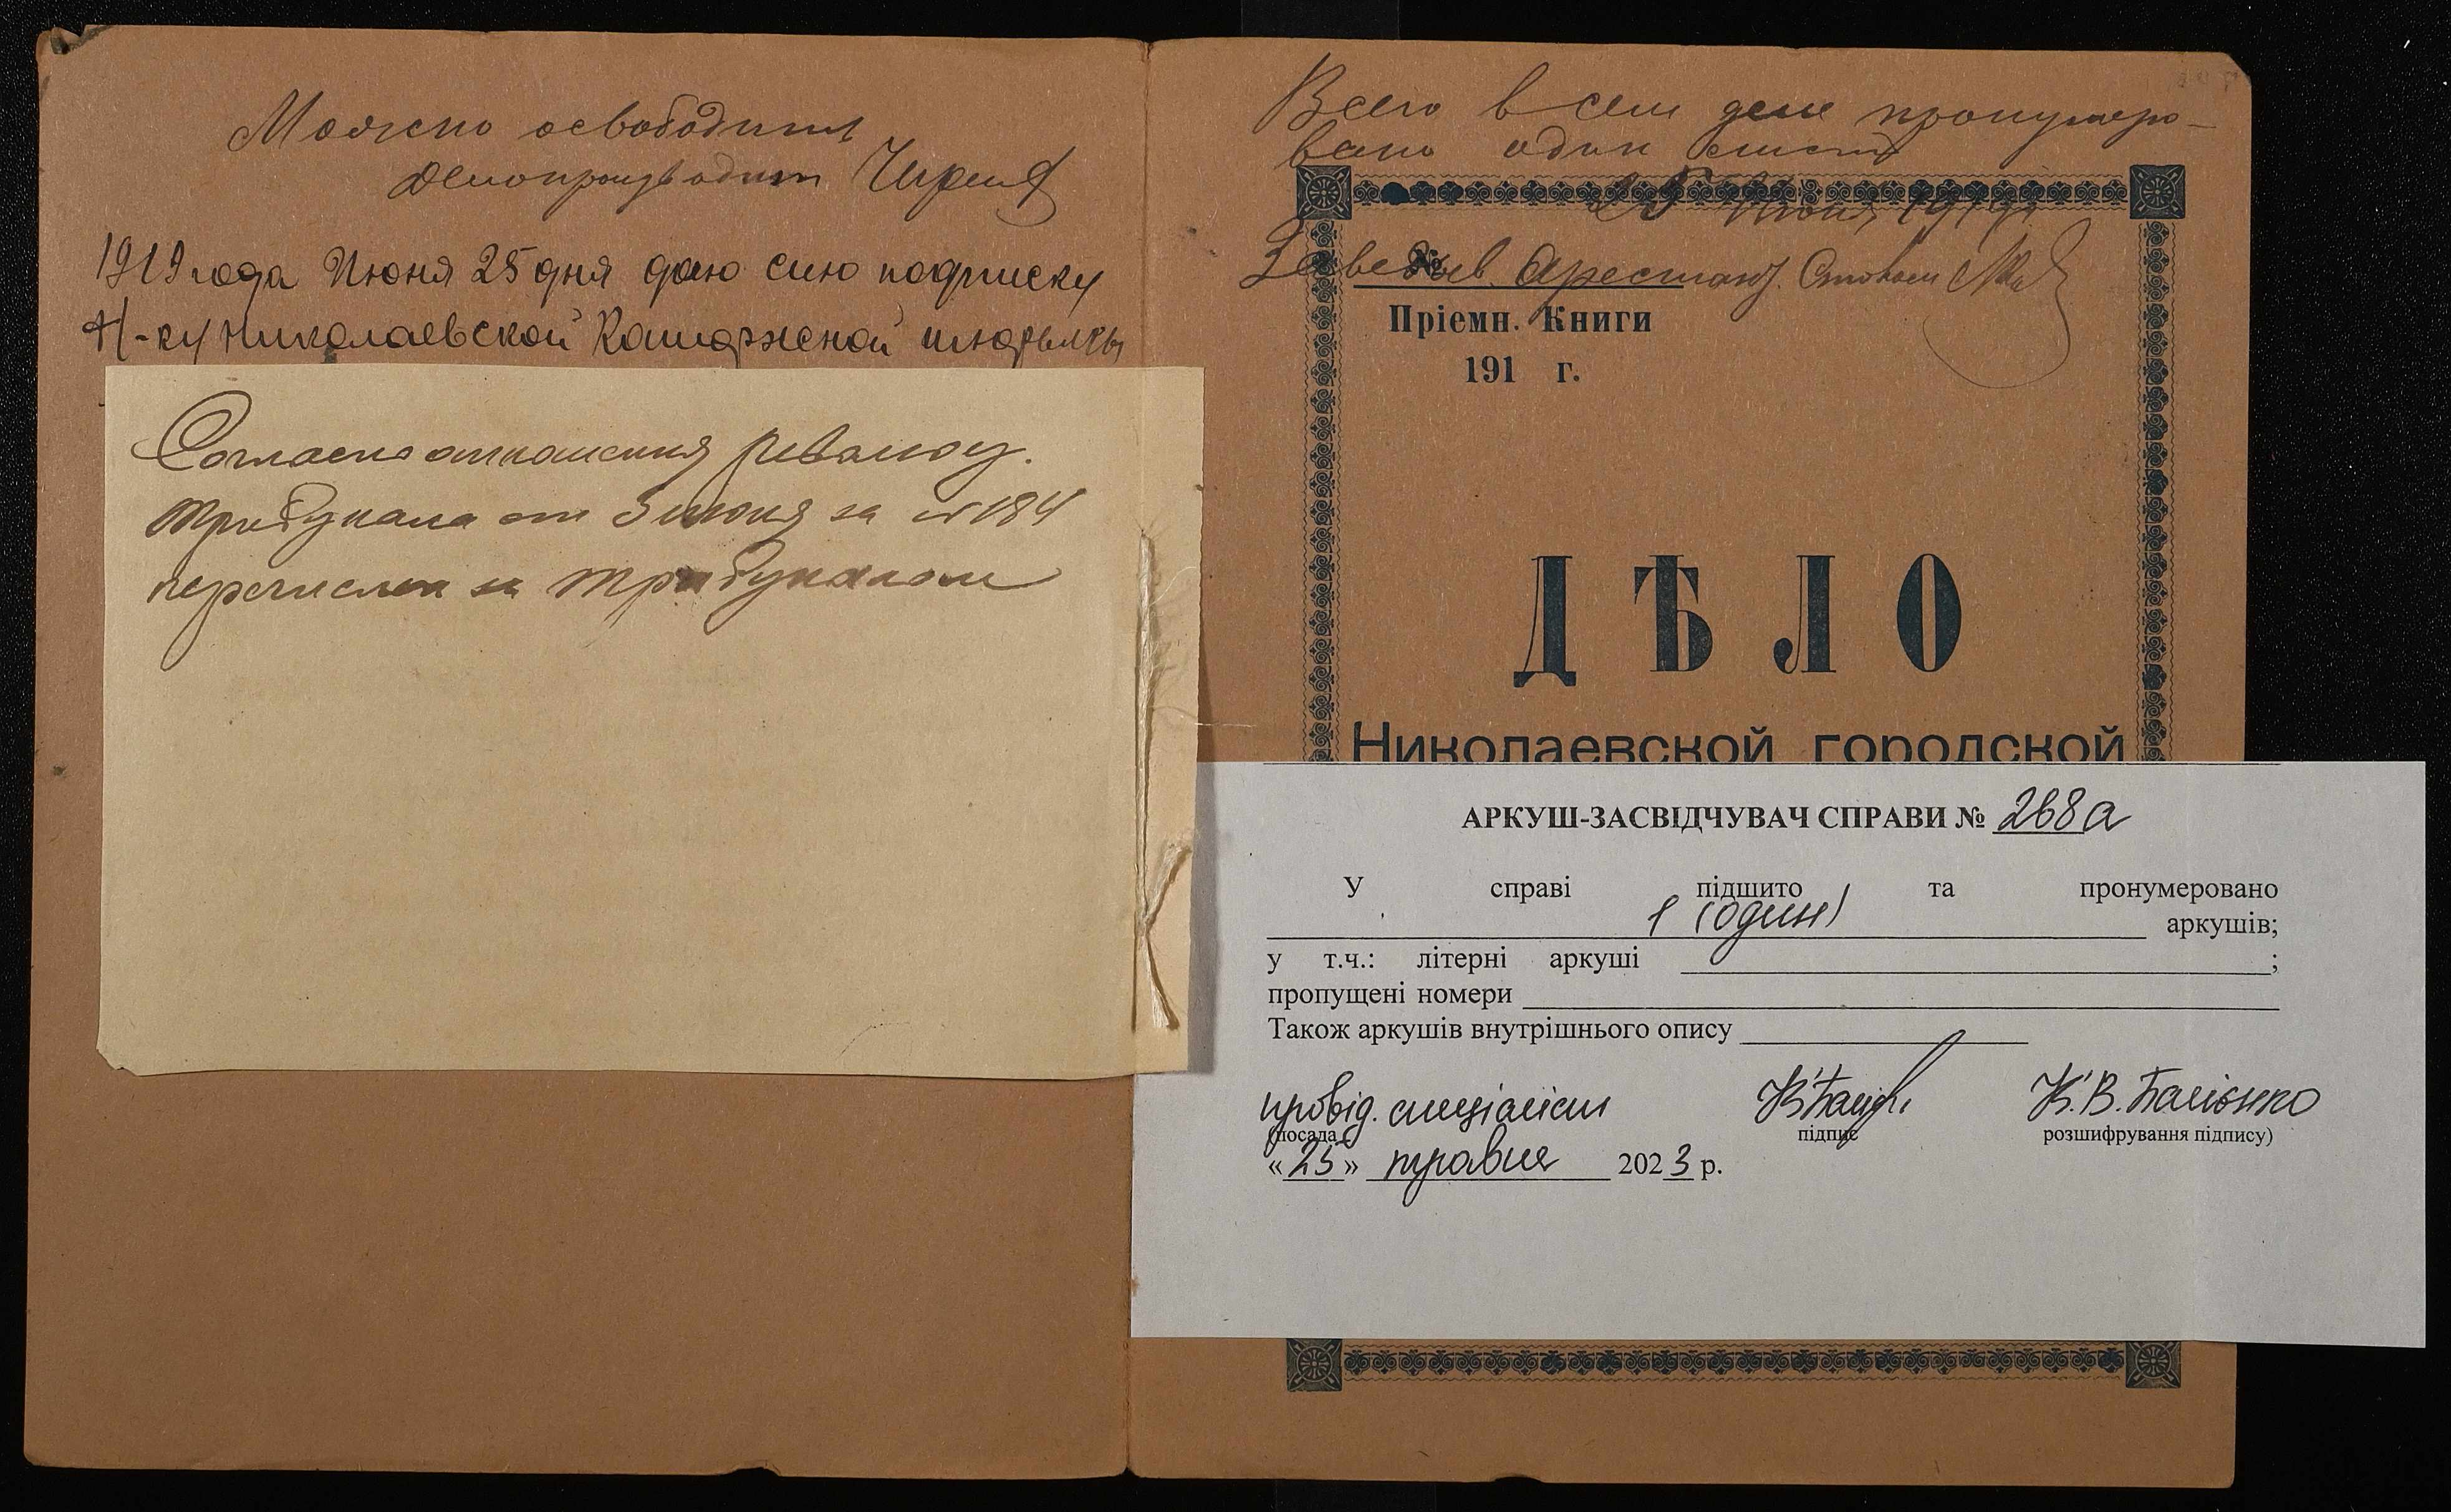 Можно освободить
Делопроизводит
1919 года Июня 25 дня даю сию подписку
Н-ку Николаевской Каторжной тюрьмы
Согласно отношения револю.
трибунала от 5 июня за № 184
перечислен за трибуналом
Всего в сем деле пронумеро-
вано один лист
25 Июня 1919
Заведыв. Арестант. Столом
№
Пріемн. Книги
191 г.
ДѢЛО
Николаевской городской
АРКУШ-ЗАСВІДЧУВАЧ СПРАВИ № 268а
У справі підшито та пронумеровано
1 (один) аркушів;
у т.ч.: літерні аркуші ;
пропущені номери
Також аркушів внутрішнього опису
провід. спеціаліст К.В. Балієнко
(посада підпис розшифрування підпису)
«25» травня 2023 р.